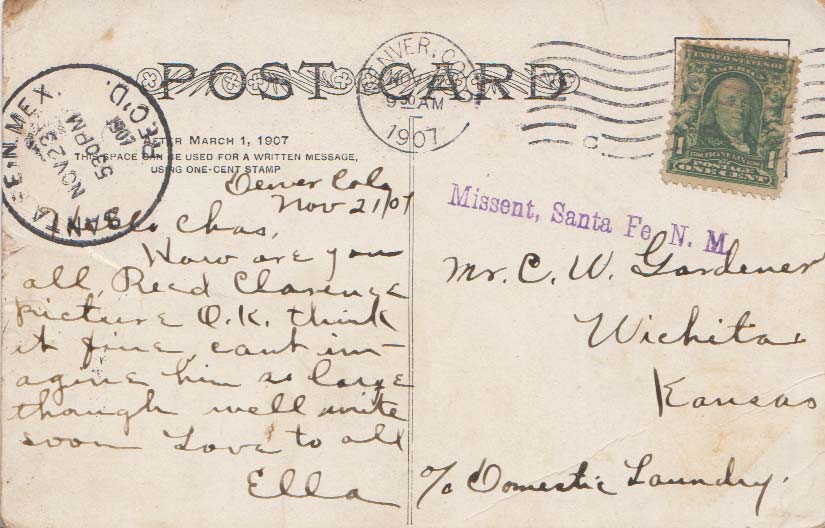 POST CARD
AFTER MARCH 1, 1907
THIS SPACE CAN BE USED FOR A WRITTEN MESSAGE,
USING ONE-CENT STAMP
SANTA FE, N. MEX.
NOV 23
530 PM
1907
REC'D.
DENVER, COLO.
NOV
930 AM
1907
UNITED STATES OF AMERICA
FRANKLIN
1 1
POSTAGE
ONE CENT
Denver Colo
Nov 21/07
Hello Chas,
How are you
all, Recd Clarence
picture O.K. think
it fine, cant im-
agine him so large
though will write
soon Love to all
Ella
Missent, Santa Fe, N. M.
Mr. C. W. Gardener
Wichita
Kansas
c/o Domestic Laundry.